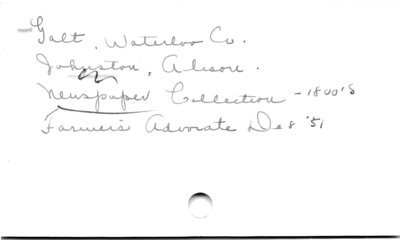 Galt, Waterloo Co.
Johnston, Alison.
Newspaper Collection - 1800's
Farmer's Advocate De 8 '51